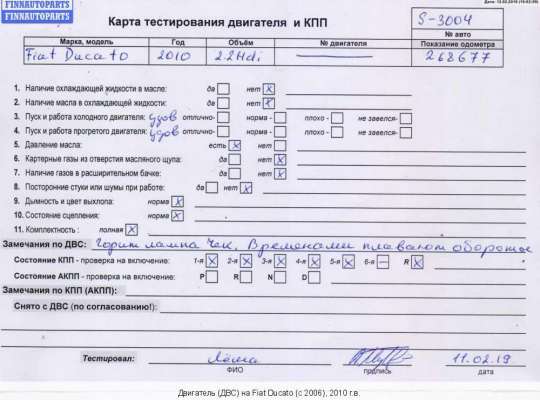 Дата: 12.02.2019
FINNAUTOPARTS
FINNAUTOPARTS
Карта тестирования двигателя и КПП
S-3004
№ авто
Марка, модель Год Объём № двигателя Показание одометра
Fiat Ducato 2010 2.2Hdi — 268677
1. Наличие охлаждающей жидкости в масле: да нет X
2. Наличие масла в охлаждающей жидкости: да нет X
3. Пуск и работа холодного двигателя: удов отлично- норма - плохо - не завелся-
4. Пуск и работа прогретого двигателя: удов отлично- норма - плохо - не завелся-
5. Давление масла: есть X нет
6. Картерные газы из отверстия масляного щупа: да нет X
7. Наличие газов в расширительном бачке: да нет X
8. Посторонние стуки или шумы при работе: да нет X
9. Дымность и цвет выхлопа: норма X
10. Состояние сцепления: норма X
11. Комплектность: полная X
Замечания по ДВС: Горит лампа Чек. Временами плавают обороты
Состояние КПП - проверка на включение: 1-я X 2-я X 3-я X 4-я X 5-я X 6-я — R X
Состояние АКПП - проверка на включение: P R N D
Замечания по КПП (АКПП):
Снято с ДВС (по согласованию!):
Тестировал: Лёша 11.02.19
ФИО подпись дата
Двигатель (ДВС) на Fiat Ducato (с 2006), 2010 г.в.